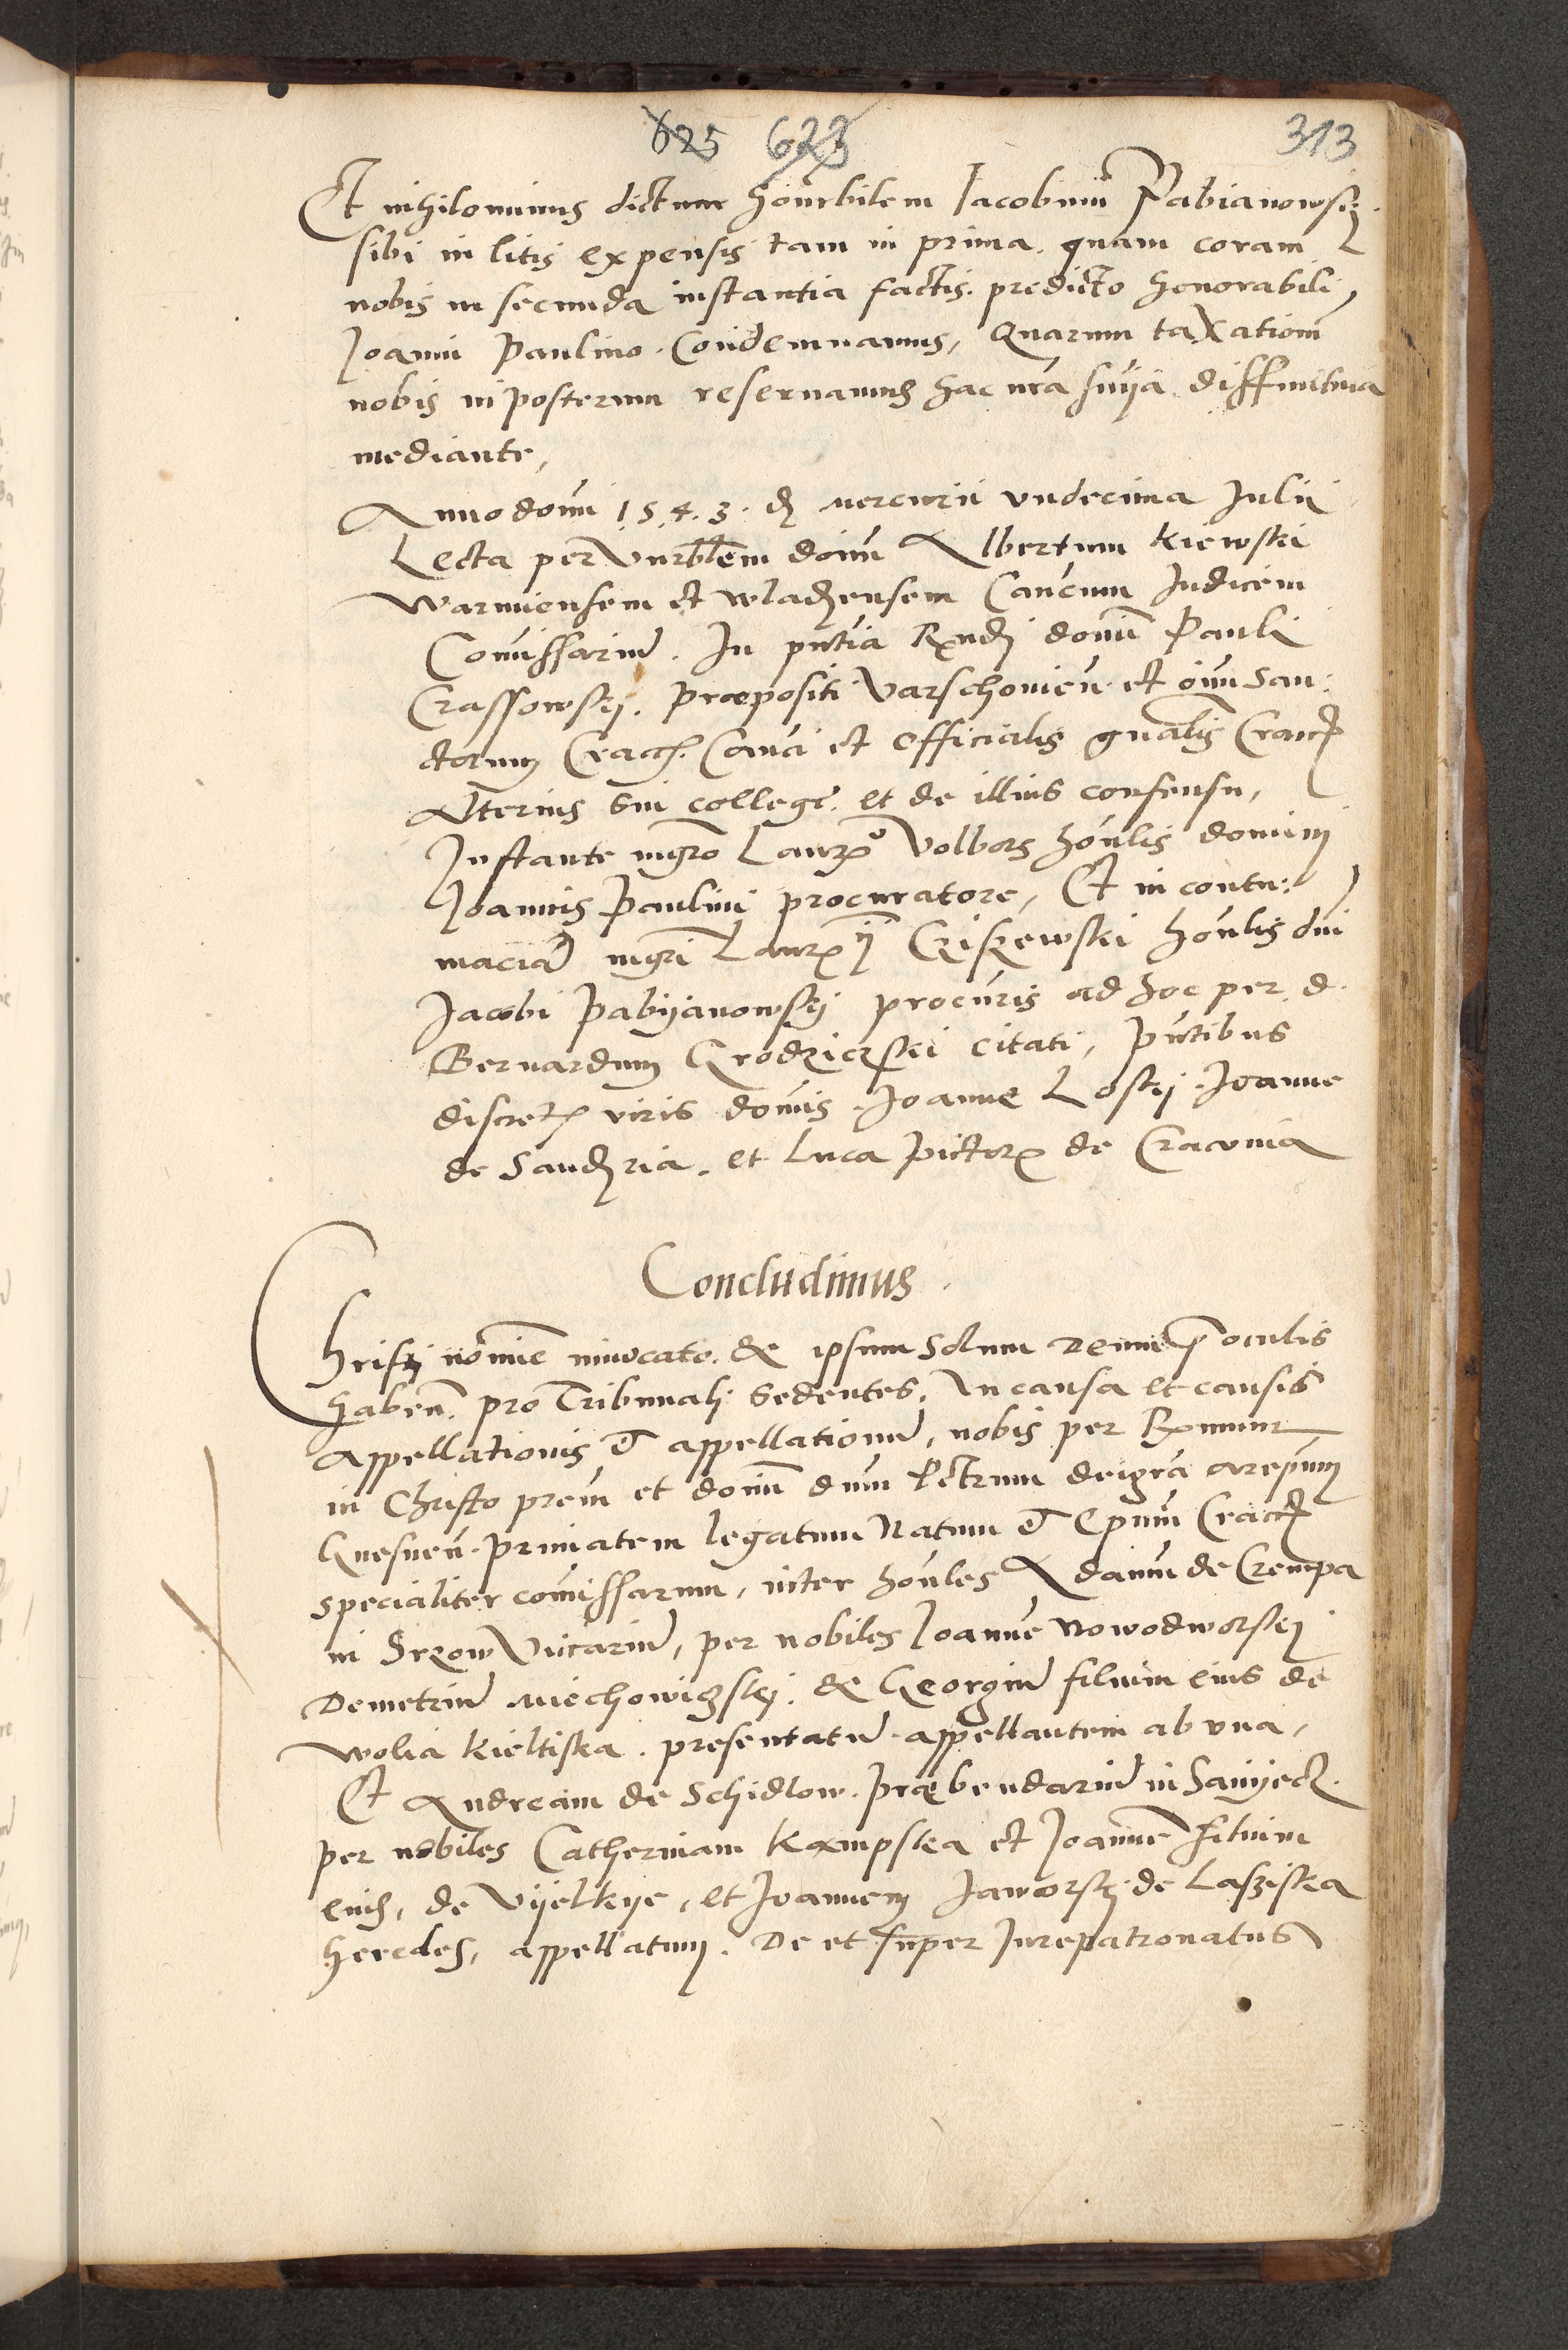 625 623 313
Et nihilominus dictum honrbilem Jacobum Pabianowsky
sibi in litis expensis tam in prima quam coram
nobis in secunda instantia factis predicto honorabili
Joanni Paulino Condemnamus, Quarum taxationem
nobis in posterum reservamus hac nra snia diffinitiva
mediante,
Anno domi 1543 d Mercurii undecima Julii
Lecta per Vnrblem domi Albertum Kiewski
Warmiensem et Wladensem Canicum Judicem
Comissarium. In pntia Rndi domi Pauli
Crassowsky. Praepositi Varschovien et oium San:
ctorum Crac. Canci et Officialis gnalis Crac
Alterius sui college et de illius consensu,
Instante mgro Laur Volbors honlis domini
Joannis Paulini procuratore, Et in contu:
maciam mgri Laurii Czizewski honlis dni
Jacobi Pabyanowsky procuris ad hoc per d.
Bernardum Grodziczski citati, pntibus
discretis viris domis Joanne Losky Joanne
de Sandria et Luca Pictore de Cracovia
Concludimus.
Christi nomine invocato & ipsum solum Deum pre oculis
haben. pro Tribunali sedentes. In causa et causis
Appellationis et appellationum, nobis per Rmum
in Christo prem et domi dnum Petrum dei gra arepum
Gnesnen. Primatem legatum Natum et Epum Crac
specialiter comissarum, inter honles Adamum de Czempa
in Srzow Vicarium, per nobiles Joannem Nowodworsky
Demetrium Miechowiczky & Georgium filium eius de
Wolia Kieltiska presentatum appellantem ab una,
Et Andream de Schidlow Praebendarium in
per nobiles Catherinam Kampska et Joannem filium
eius, de Vyelkye, et Joannem Jaworsky de Lasziska
heredes, appellatum. De et super Jurepatronatus